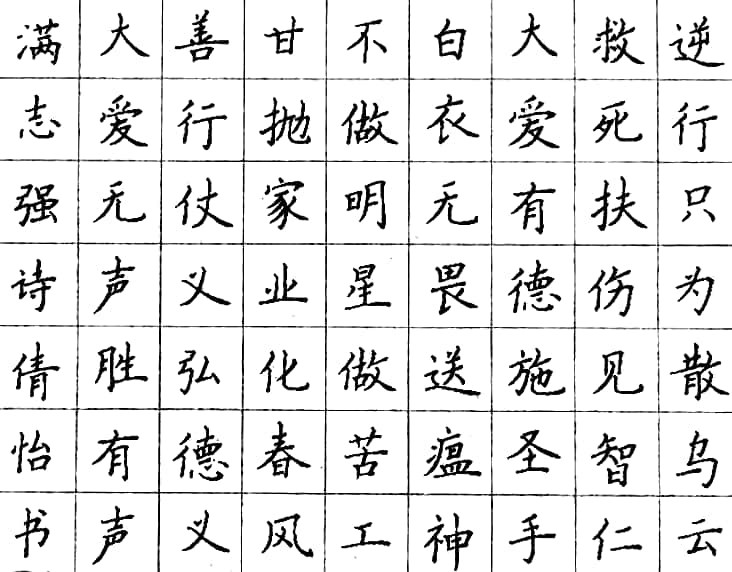 逆行只为散乌云
救死扶伤见智仁
大爱有德施圣手
白衣无畏送瘟神
不做明星做苦工
甘抛家业化春风
善行仗义弘德义
大爱无声胜有声
满志强诗倩怡书